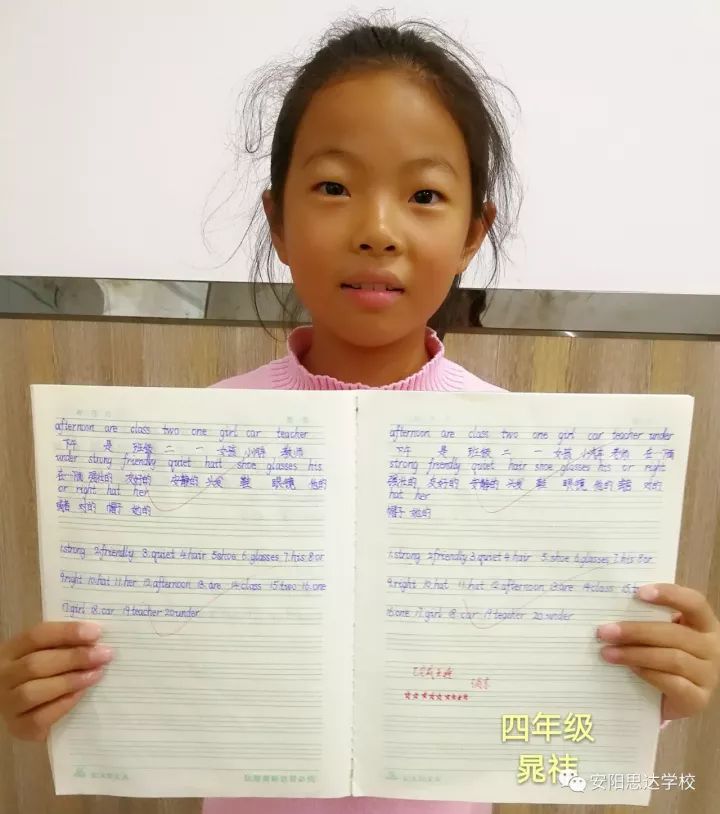 afternoon are class two one girl car teacher
下午 是 班级 二 一 女孩 小汽车 教师
under strong friendly quiet hair shoe glasses his
强壮的 友好的 安静的 头发 鞋 眼镜 他的
or right hat her
或者 对的 帽子 她的
1.strong 2.friendly 3.quiet 4.hair 5.shoe 6.glasses 7.his 8.or
9.right 10.hat 11.her 12.afternoon 13.are 14.class 15.two 16.one
17.girl 18.car 19.teacher 20.under
afternoon are class two one girl car teacher under
下午 是 班级 二 一 女孩 小汽车 老师
strong friendly quiet hair shoe glasses his or right
强壮的 友好的 安静的 头发 鞋 眼镜 他的 或者 对的
hat her
帽子 她的
1.strong 2.friendly 3.quiet 4.hair 5.shoe 6.glasses 7.his 8.or
9.right 10.hat 11.hat 12.afternoon 13.are 14.class 15.
16.one 17.girl 18.car 19.teacher 20.under
四年级
晁祎
安阳思达学校